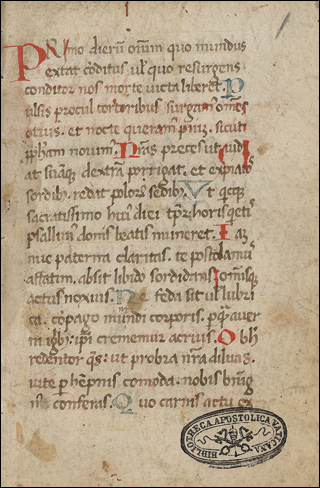 PRimo dierū oīum quo mundus
extat cōditus ul' quo resurgens
conditor nos morte victa liberet. P
ulsis procul torporibus surgamꝰ om̄es
otius. et nocte queramꝰ pium. sicuti
ꝓph̄am novimꝰ. Nr̄as preces ut audi
at suāqꝫ dextrā porrigat. et expiatos
sordibꝫ. redat polorꝫ sedibꝫ. Ut qiqꝫ
sacratissimo huiꝰ diei tp̄r. horis qieti
psallimꝰ. donis beatis muneret. Iaꝫ
nūc paterna claritas. te postulamꝰ
affatim. absit libido sordidans. om̄isqꝫ
actus noxius. Ne feda sit ul' lubri
ca. cōpago nr̄i corporis. ꝑ quā aver
ni ignibꝫ. ip̄i crememur acrius. Ob h̄
redentor qs̄. ut probra nr̄a diluas.
vite ꝑhēpnis comoda. nobis bēīg
ne conferas. Quo carnis actu ex
BIBLIOTHECA APOSTOLICA VATICANA